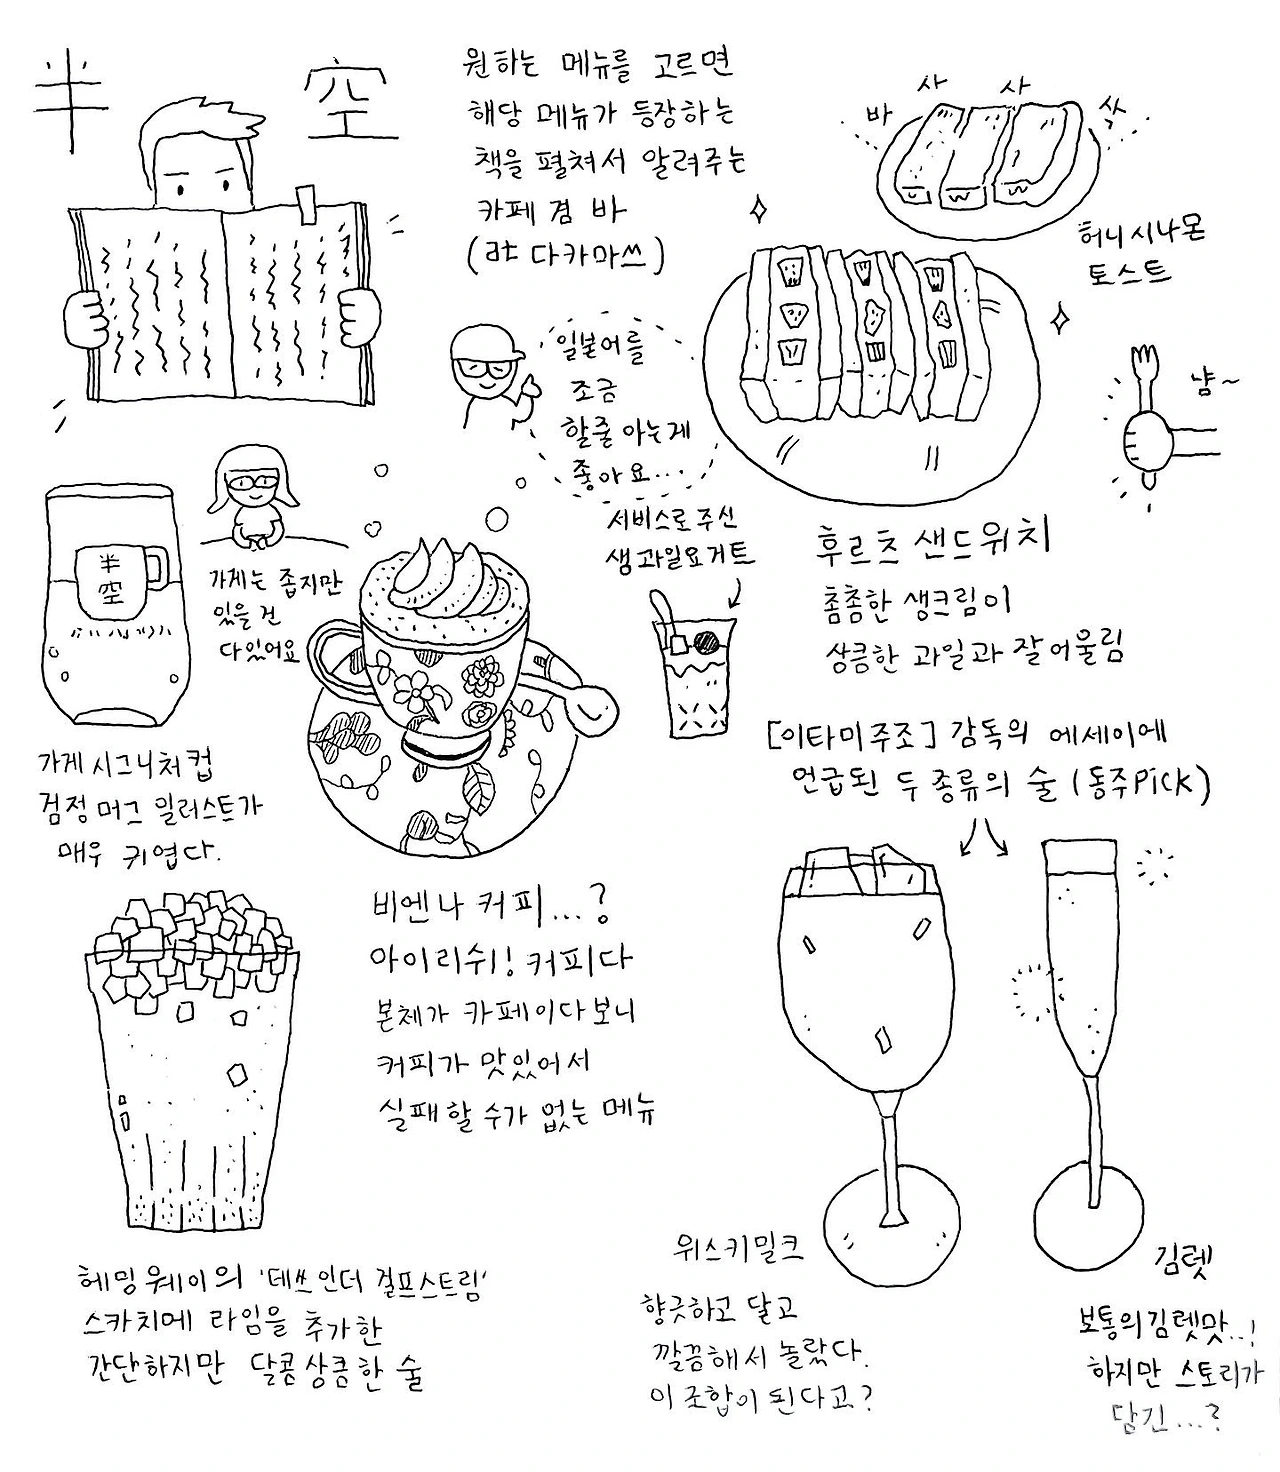 半 空
원하는 메뉴를 고르면
해당 메뉴가 등장하는
책을 펼쳐서 알려주는
카페 겸 바
(at 다카마쓰)
바 사 사 삭
허니 시나몬
토스트
일본어를
조금
할줄 아는게
좋아요...
냠~
서비스로 주신
생과일요거트
후르츠 샌드위치
촘촘한 생크림이
상큼한 과일과 잘 어울림
半
空
가게는 좁지만
있을 건
다 있어요
가게 시그니처 컵
검정 머그 일러스트가
매우 귀엽다.
[이타미 주조] 감독의 에세이에
언급된 두 종류의 술 (동주 PiCK)
비엔나 커피...?
아이리쉬! 커피다
본체가 카페이다보니
커피가 맛있어서
실패할 수가 없는 메뉴
헤밍웨이의 '데쓰 인 더 걸프스트림'
스카치에 라임을 추가한
간단하지만 달콤상큼한 술
위스키밀크
향긋하고 달고
깔끔해서 놀랐다.
이 조합이 된다고?
김렛
보통의 김렛맛..!
하지만 스토리가
담긴...?